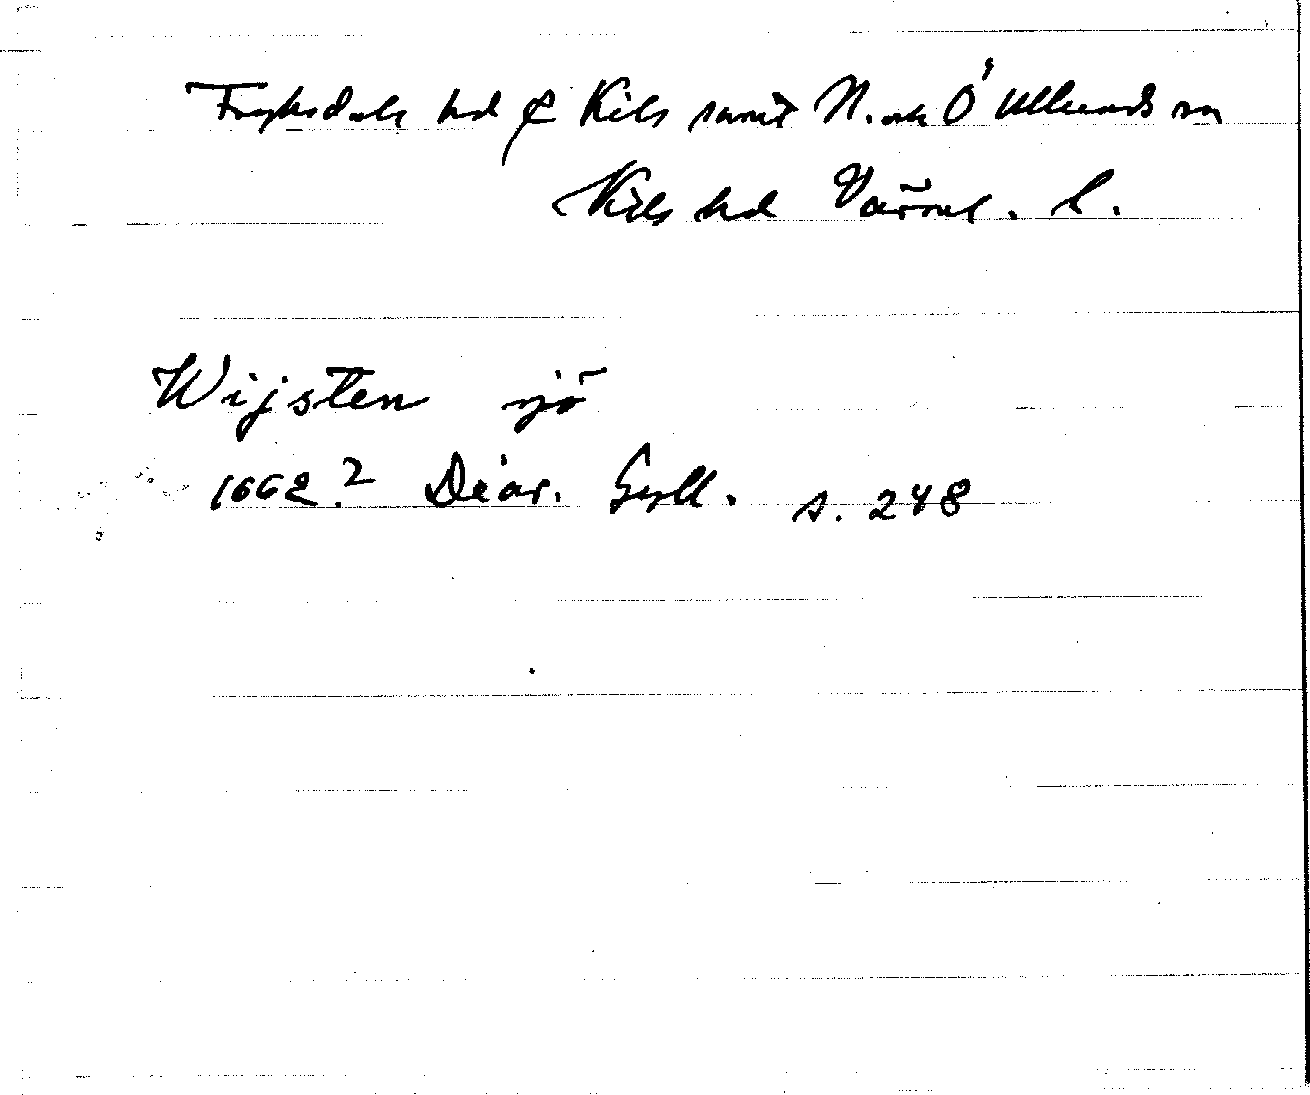 Fryksdals hd & Kils samt N. och Ö Ulleruds sn
Kils hd Värml. l.
Wijsten sjö
1662? Diar. Gyll. s. 248